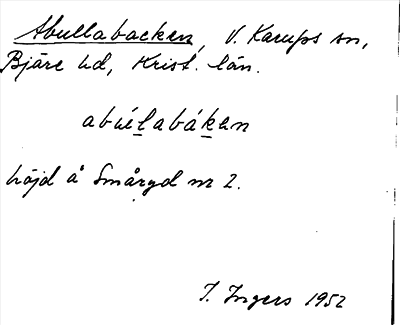 Abullabacken, V. Karups sn,
Bjäre hd, Krist. län.
abúl̲abák̲en
höjd å Småryd nr 2.
I. Ingers 1952